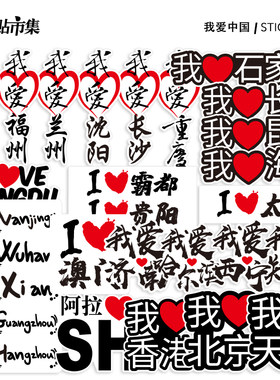 贴市集
我爱中国 / STIC
我爱福州
我爱兰州
我爱沈阳
我爱长沙
我爱重庆
我❤石家
我❤
我❤
我❤
I ❤ 霸都
I ❤ 贵阳
I ❤
Nanjing
Wuhan
Xi an
Guangzhou
Hangzhou
I ❤
我爱
我爱
我爱
我爱
澳门
济南
哈尔滨
西宁
阿拉❤
SH
我❤
香港
我❤
北京
我❤
天